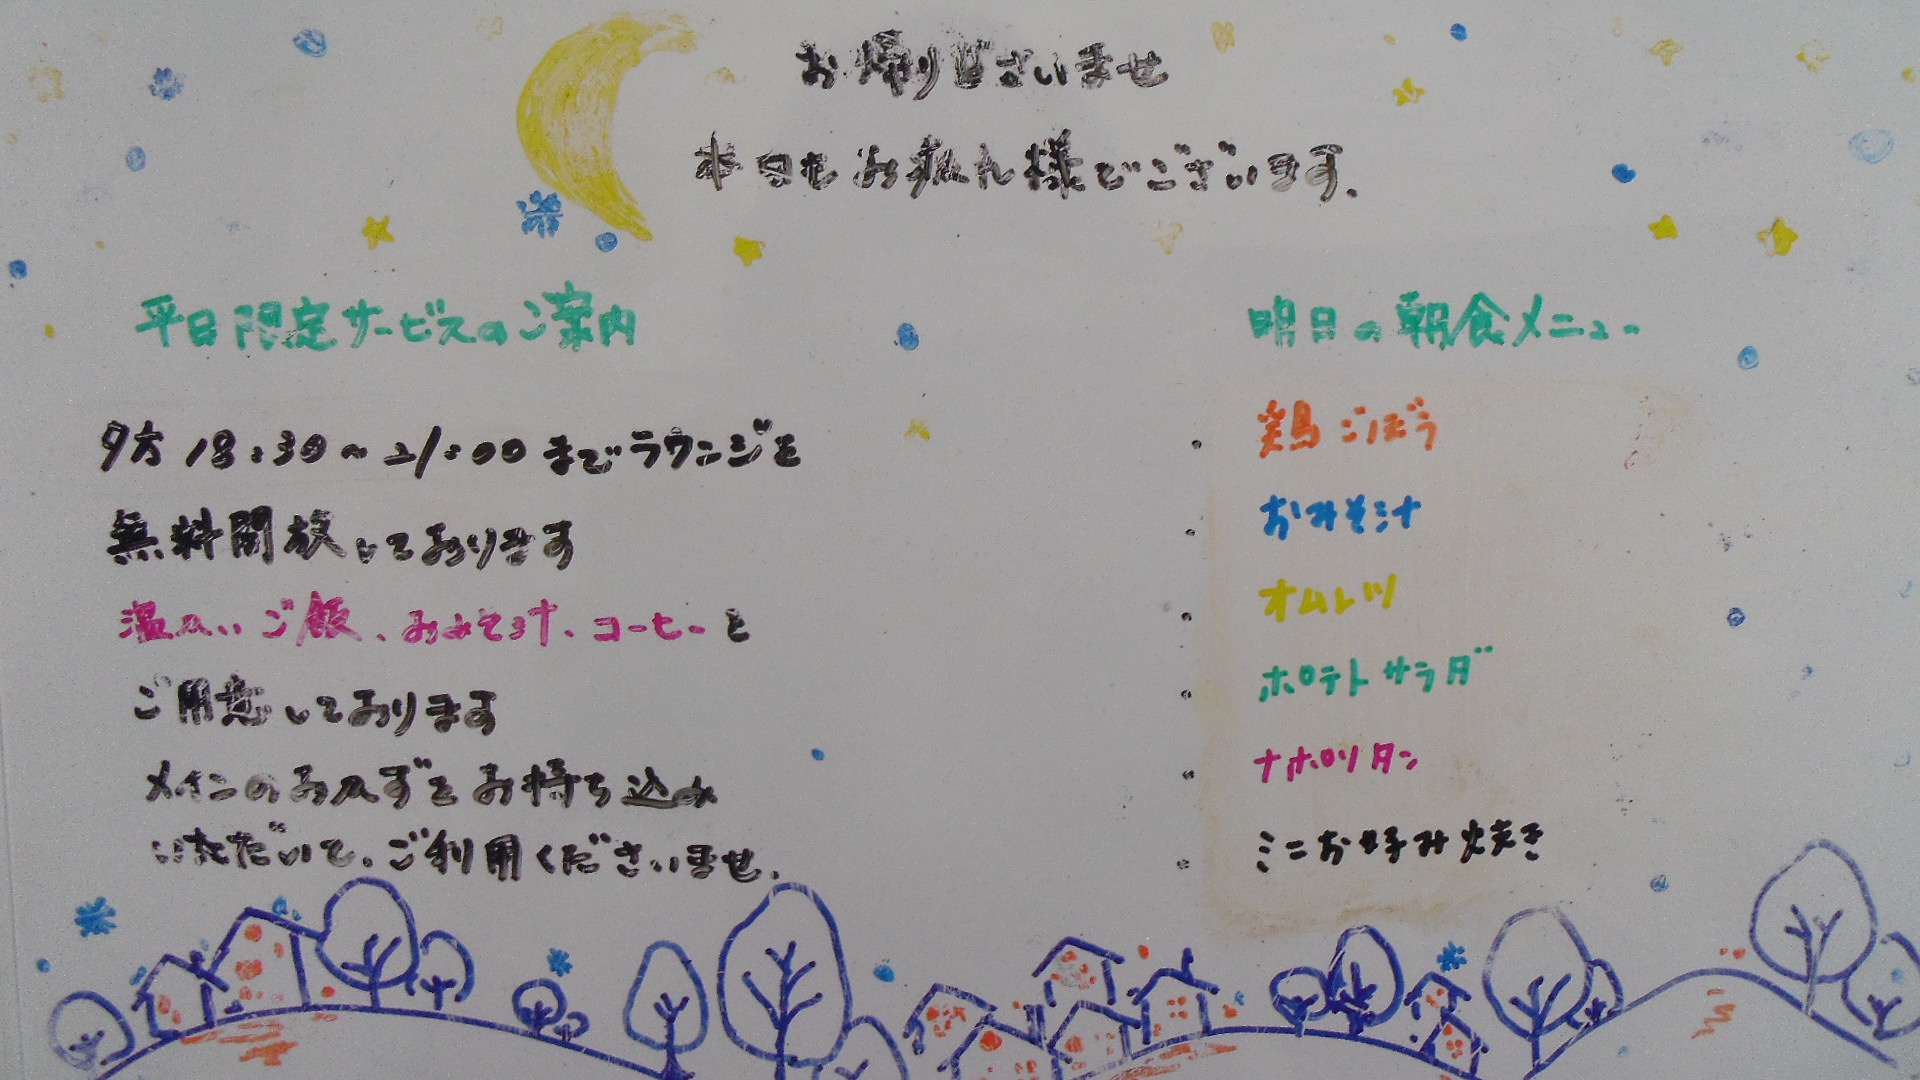 お帰りなさいませ
本日もお疲れ様でございます。
平日限定サービスのご案内
夕方 18:30～21:00 までラウンジを
無料開放しております
温かいご飯、おみそ汁、コーヒーを
ご用意しております
メインのおかずをお持ち込み
いただいて、ご利用くださいませ。
明日の朝食メニュー
・鶏ごぼう
・おみそ汁
・オムレツ
・ポテトサラダ
・ナポリタン
・ミニお好み焼き